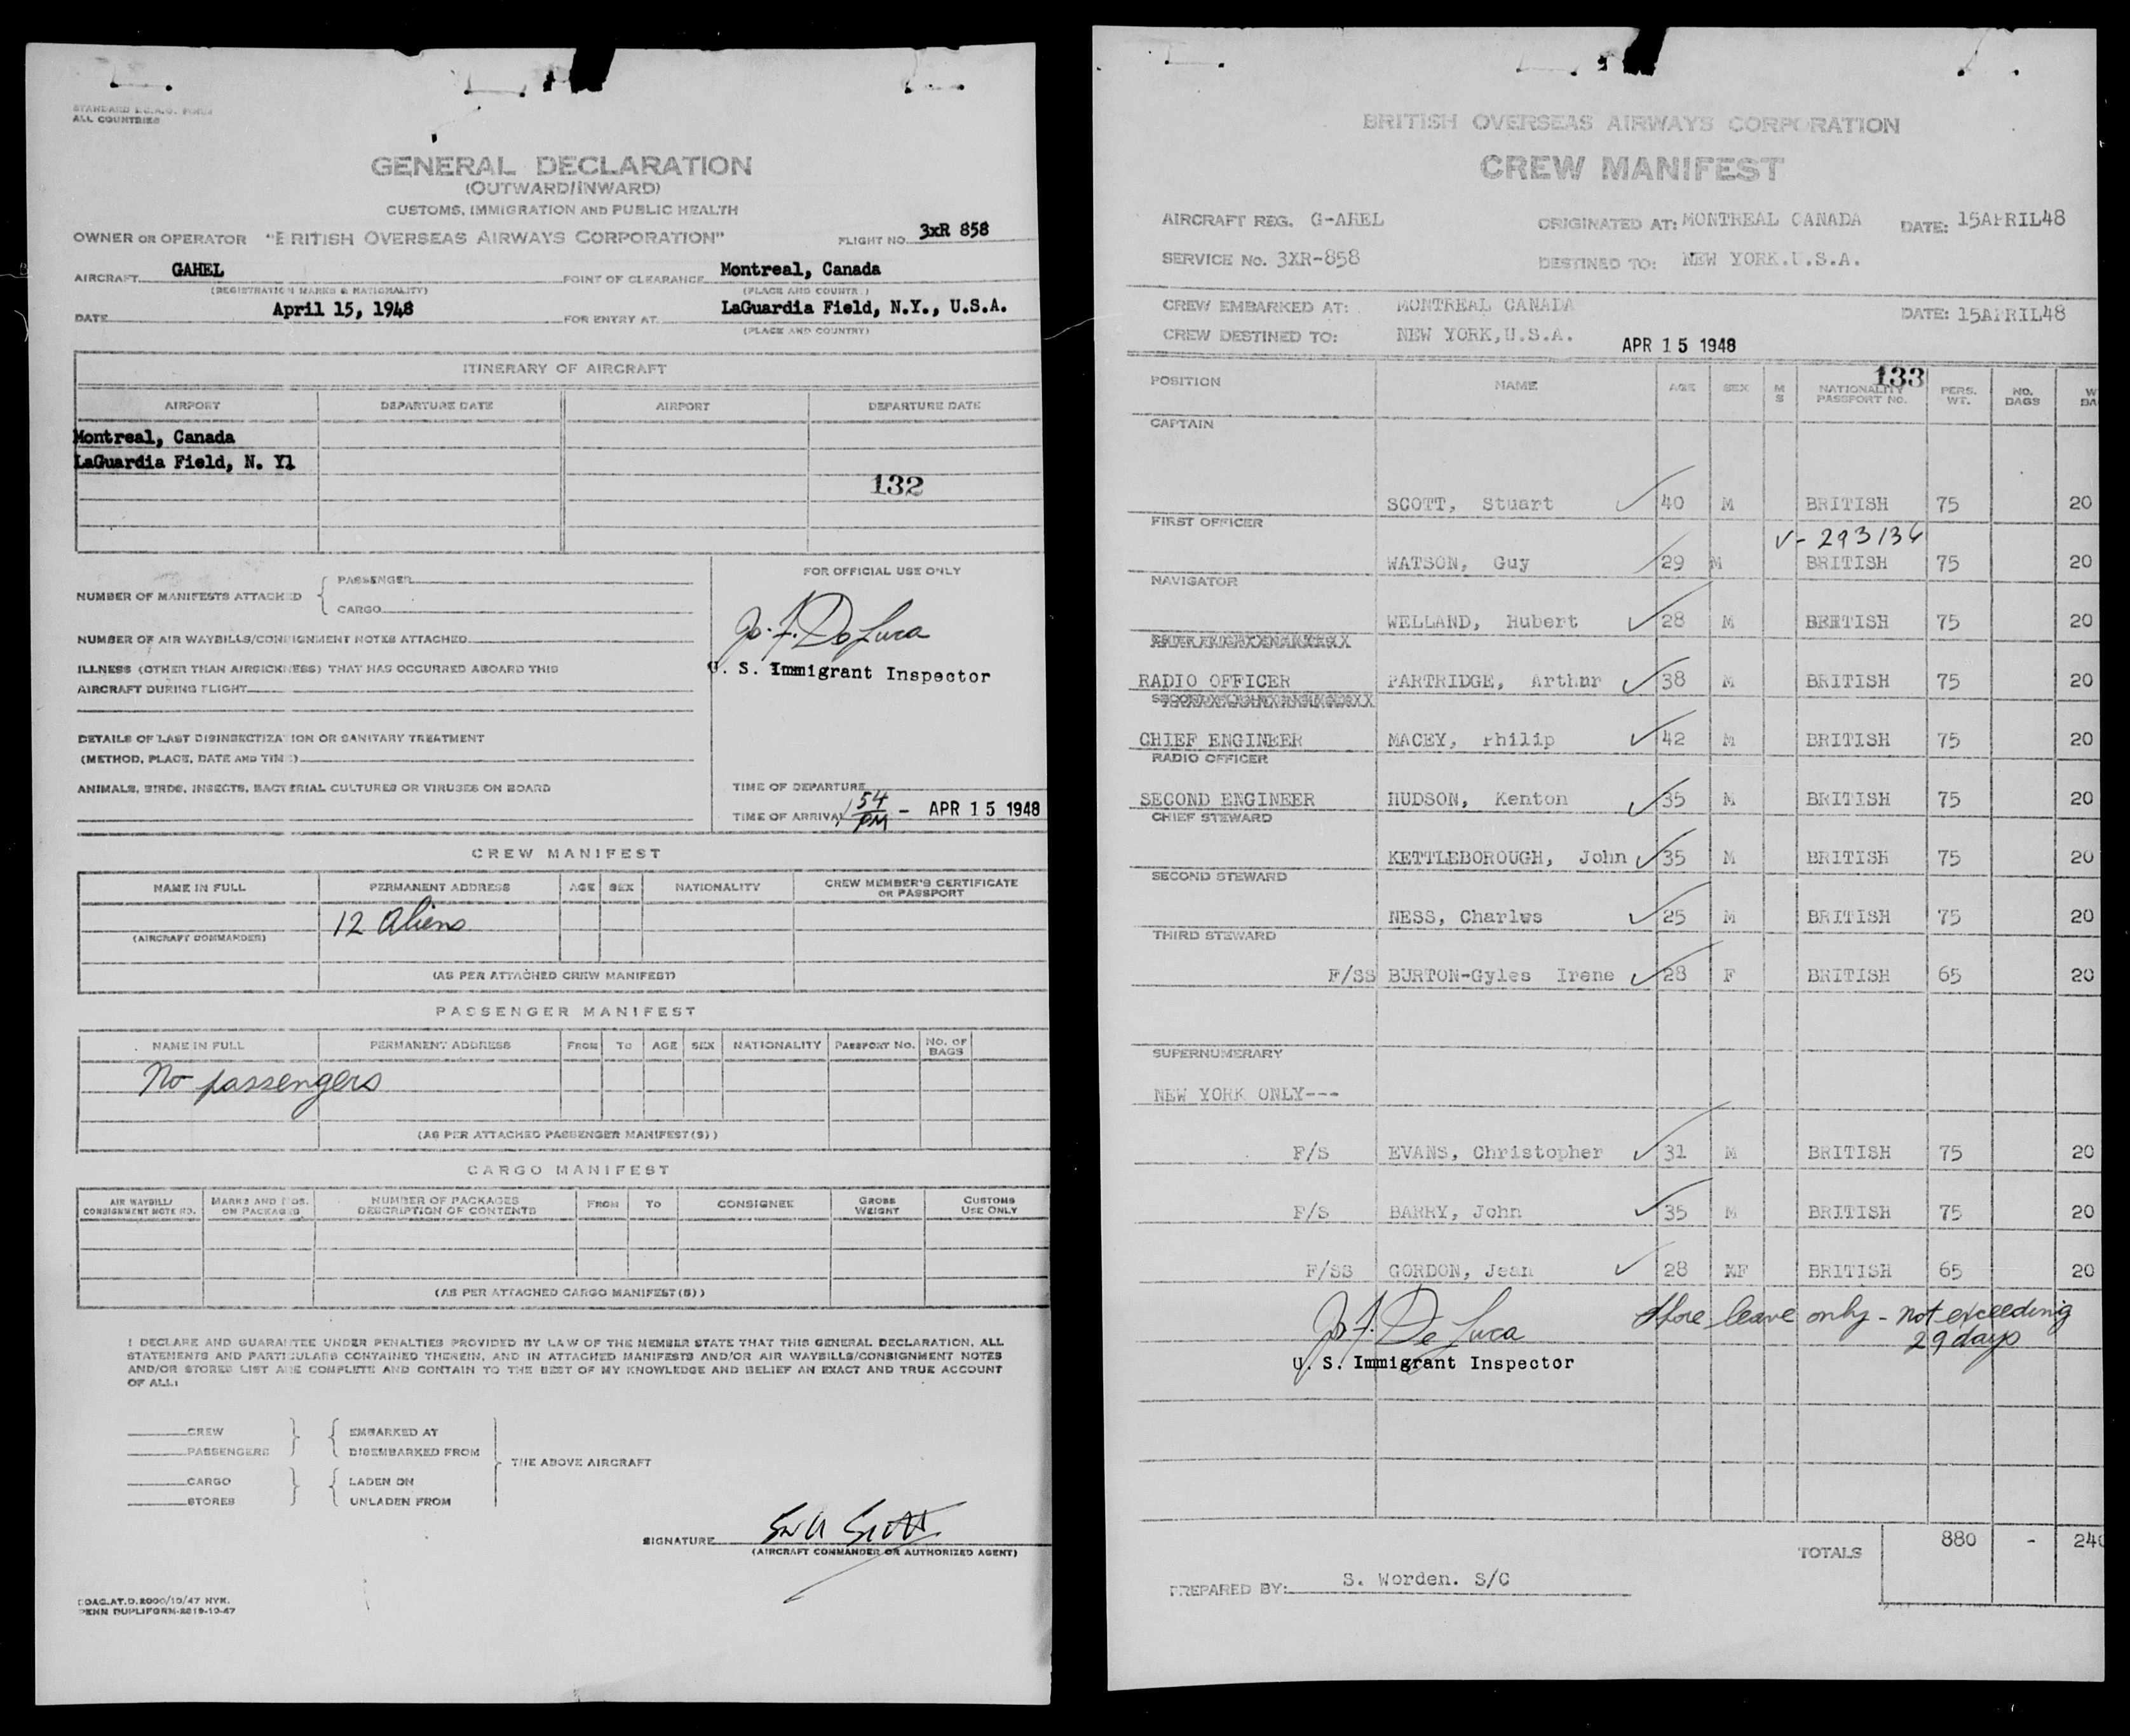 STANDARD I.C.A.O. FORM
ALL COUNTRIES
GENERAL DECLARATION
(OUTWARD/INWARD)
CUSTOMS, IMMIGRATION AND PUBLIC HEALTH
OWNER OR OPERATOR "BRITISH OVERSEAS AIRWAYS CORPORATION" FLIGHT NO. 3xR 858
AIRCRAFT GAHEL POINT OF CLEARANCE Montreal, Canada
(REGISTRATION MARKS & NATIONALITY) (PLACE AND COUNTRY)
DATE April 15, 1948 FOR ENTRY AT LaGuardia Field, N.Y., U.S.A.
(PLACE AND COUNTRY)
ITINERARY OF AIRCRAFT
AIRPORT DEPARTURE DATE AIRPORT DEPARTURE DATE
Montreal, Canada
LaGuardia Field, N. Yl
132
NUMBER OF MANIFESTS ATTACHED { PASSENGER
CARGO
FOR OFFICIAL USE ONLY
NUMBER OF AIR WAYBILLS/CONSIGNMENT NOTES ATTACHED
ILLNESS (OTHER THAN AIRSICKNESS) THAT HAS OCCURRED ABOARD THIS
AIRCRAFT DURING FLIGHT
Jo. F. De Luca
U. S. Immigrant Inspector
DETAILS OF LAST DISINSECTIZATION OR SANITARY TREATMENT
(METHOD, PLACE, DATE AND TIME)
ANIMALS, BIRDS, INSECTS, BACTERIAL CULTURES OR VIRUSES ON BOARD
TIME OF DEPARTURE
TIME OF ARRIVAL 1 54 PM - APR 15 1948
CREW MANIFEST
NAME IN FULL PERMANENT ADDRESS AGE SEX NATIONALITY CREW MEMBER'S CERTIFICATE OR PASSPORT
12 Aliens
(AIRCRAFT COMMANDER)
(AS PER ATTACHED CREW MANIFEST)
PASSENGER MANIFEST
NAME IN FULL PERMANENT ADDRESS FROM TO AGE SEX NATIONALITY PASSPORT NO. NO. OF BAGS
No passengers
(AS PER ATTACHED PASSENGER MANIFEST(S))
CARGO MANIFEST
AIR WAYBILL/ CONSIGNMENT NOTE NO. MARKS AND NOS. ON PACKAGES NUMBER OF PACKAGES DESCRIPTION OF CONTENTS FROM TO CONSIGNEE GROSS WEIGHT CUSTOMS USE ONLY
(AS PER ATTACHED CARGO MANIFEST(S))
I DECLARE AND GUARANTEE UNDER PENALTIES PROVIDED BY LAW OF THE MEMBER STATE THAT THIS GENERAL DECLARATION, ALL
STATEMENTS AND PARTICULARS CONTAINED THEREIN, AND IN ATTACHED MANIFESTS AND/OR AIR WAYBILLS/CONSIGNMENT NOTES
AND/OR STORES LIST ARE COMPLETE AND CONTAIN TO THE BEST OF MY KNOWLEDGE AND BELIEF AN EXACT AND TRUE ACCOUNT
OF ALL:
CREW EMBARKED AT
PASSENGERS DISEMBARKED FROM
THE ABOVE AIRCRAFT
CARGO LADEN ON
STORES UNLADEN FROM
SIGNATURE
(AIRCRAFT COMMANDER OR AUTHORIZED AGENT)
BRITISH OVERSEAS AIRWAYS CORPORATION
CREW MANIFEST
AIRCRAFT REG. G-AHEL ORIGINATED AT: MONTREAL CANADA DATE: 15APRIL48
SERVICE No. 3XR-858 DESTINED TO: NEW YORK.U.S.A.
CREW EMBARKED AT: MONTREAL CANADA DATE: 15APRIL48
CREW DESTINED TO: NEW YORK,U.S.A. APR 15 1948
133
POSITION NAME AGE SEX M S NATIONALITY PASSPORT NO. PERS. WT. NO. BAGS
CAPTAIN
SCOTT, Stuart 40 M BRITISH 75 20
FIRST OFFICER
V-293136
WATSON, Guy 29 M BRITISH 75 20
NAVIGATOR
WELLAND, Hubert 28 M BRITISH 75 20
RADIO OFFICER PARTRIDGE, Arthur 38 M BRITISH 75 20
CHIEF ENGINEER MACEY, Philip 42 M BRITISH 75 20
RADIO OFFICER
SECOND ENGINEER HUDSON, Kenton 35 M BRITISH 75 20
CHIEF STEWARD
KETTLEBOROUGH, John 35 M BRITISH 75 20
SECOND STEWARD
NESS, Charles 25 M BRITISH 75 20
THIRD STEWARD
F/SS BURTON-Gyles Irene 28 F BRITISH 65 20
SUPERNUMERARY
NEW YORK ONLY---
F/S EVANS, Christopher 31 M BRITISH 75 20
F/S BARRY, John 35 M BRITISH 75 20
F/SS GORDON, Jean 28 MF BRITISH 65 20
Shore leave only - not exceeding
29 days
Jo. F. De Luca
U. S. Immigrant Inspector
TOTALS 880 - 240
PREPARED BY: S. Worden. S/C